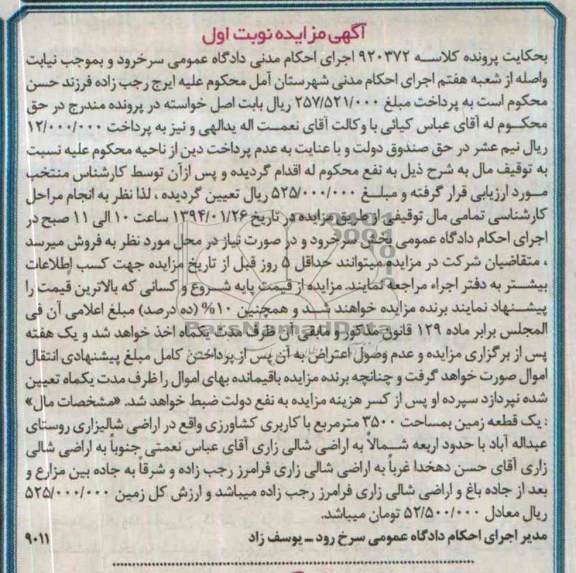 آگهی مزایده نوبت اول
بحکایت پرونده کلاسه ۹۲۰۳۷۲ اجرای احکام مدنی دادگاه عمومی سرخرود و بموجب نیابت
واصله از شعبه هفتم اجرای احکام مدنی شهرستان آمل محکوم علیه ایرج رجب زاده فرزند حسن
محکوم است به پرداخت مبلغ ۲۵۷/۵۲۱/۰۰۰ ریال بابت اصل خواسته در پرونده مندرج در حق
محکوم له آقای عباس کیائی با وکالت آقای نعمت اله یدالهی و نیز به پرداخت ۱۲/۰۰۰/۰۰۰
ریال نیم عشر در حق صندوق دولت و با عنایت به عدم پرداخت دین از ناحیه محکوم علیه نسبت
به توقیف مال به شرح ذیل به نفع محکوم له اقدام گردیده و پس ازآن توسط کارشناس منتخب
مورد ارزیابی قرار گرفته و مبلغ ۵۲۵/۰۰۰/۰۰۰ ریال تعیین گردیده ، لذا نظر به انجام مراحل
کارشناسی تمامی مال توقیفی از طریق مزایده در تاریخ ۱۳۹۴/۰۱/۲۶ ساعت ۱۰ الی ۱۱ صبح در
اجرای احکام دادگاه عمومی بخش سرخرود و در صورت نیاز در محل مورد نظر به فروش میرسد
، متقاضیان شرکت در مزایده میتوانند حداقل ۵ روز قبل از تاریخ مزایده جهت کسب اطلاعات
بیشتر به دفتر اجراء مراجعه نمایند. مزایده از قیمت پایه شروع و کسانی که بالاترین قیمت را
پیشنهاد نمایند برنده مزایده خواهند شد و همچنین ۱۰% (ده درصد) مبلغ اعلامی آن فی
المجلس برابر ماده ۱۲۹ قانون مذکور و مابقی آن ظرف مدت یکماه اخذ خواهد شد و یک هفته
پس از برگزاری مزایده و عدم وصول اعتراض به آن پس از پرداختن کامل مبلغ پیشنهادی انتقال
اموال صورت خواهد گرفت و چنانچه برنده مزایده باقیمانده بهای اموال را ظرف مدت یکماه تعیین
شده نپردازد سپرده او پس از کسر هزینه مزایده به نفع دولت ضبط خواهد شد. «مشخصات مال»
: یک قطعه زمین بمساحت ۳۵۰۰ مترمربع با کاربری کشاورزی واقع در اراضی شالیزاری روستای
عبداله آباد با حدود اربعه شمالاً به اراضی شالی زاری آقای عباس نعمتی جنوباً به اراضی شالی
زاری آقای حسن دهخدا غرباً به اراضی شالی زاری فرامرز رجب زاده و شرقا به جاده بین مزارع و
بعد از جاده باغ و اراضی شالی زاری فرامرز رجب زاده میباشد و ارزش کل زمین ۵۲۵/۰۰۰/۰۰۰
ریال معادل ۵۲/۵۰۰/۰۰۰ تومان میباشد.
مدیر اجرای احکام دادگاه عمومی سرخ رود ـ یوسف زاد ۹۰۱۱